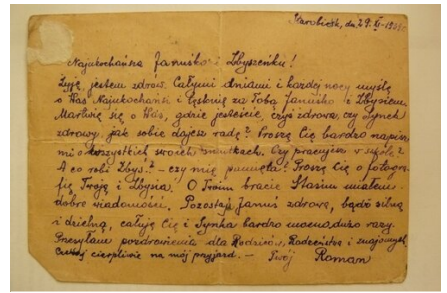 Starobielsk, dn. 29. XI - 1939 r.
Najukochańsza Januśko i Zbyszeńku!
Żyję, jestem zdrów. Całymi dniami i każdej nocy myślę
o Was Najukochańsi i tęsknię za Tobą Januśko i Zbysiem.
Martwię się o Was, gdzie jesteście, czyś zdrowa, czy Synek
zdrowy, jak sobie dajesz radę? Proszę Cię bardzo napisz
mi o wszystkich swoich smutkach. Czy pracujesz w
A co robi Zbyś? - czy mię pamięta? Proszę Cię o fotogra-
fię Twoją i Zbysia! O Twoim bracie Stasiu miałem
dobre wiadomości. Pozostaj Januś zdrową, bądź silną
i dzielną, całuję Cię i Synka bardzo mocno, dużo razy.
Przesyłam pozdrowienia dla Rodziców, Rodzeństwa i znajomych
Czekaj cierpliwie na mój przyjazd. - Twój Roman